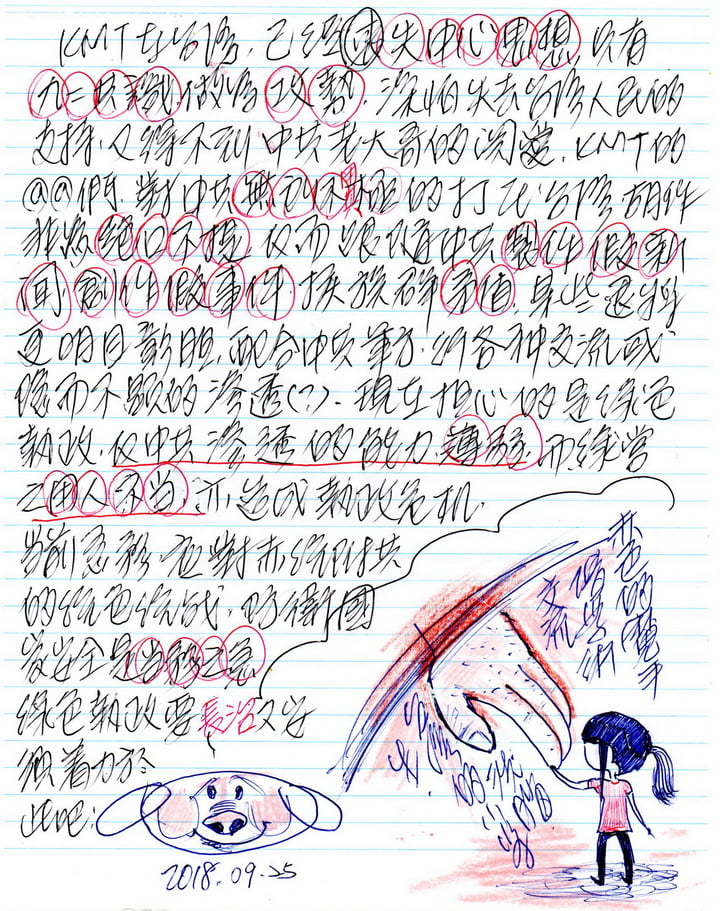 KMT在台灣，已經迷失中心思想，只有
九二共識做為攻勢，深怕失去台灣人民的
支持，又得不到中共老大哥的關愛，KMT的
@@們，對中共無所不用其極的打壓台灣
絕口不提，反而跟隨中共製作假新
聞，創作假事件族群矛盾，某些退將
更明目張胆，配合中共軍方，以各種交流或
隱而不顯的滲透(?)。現在担心的是綠色
執政，反中共滲透的能力薄弱，而綠營
之用人不當，亦造成執政危机，
當前
的紅色統战，防衛國
家安全是當務之急
綠色執政要長治久安
須着力於
此吧！
2018.09.25
赤色的魔手
交流
學術